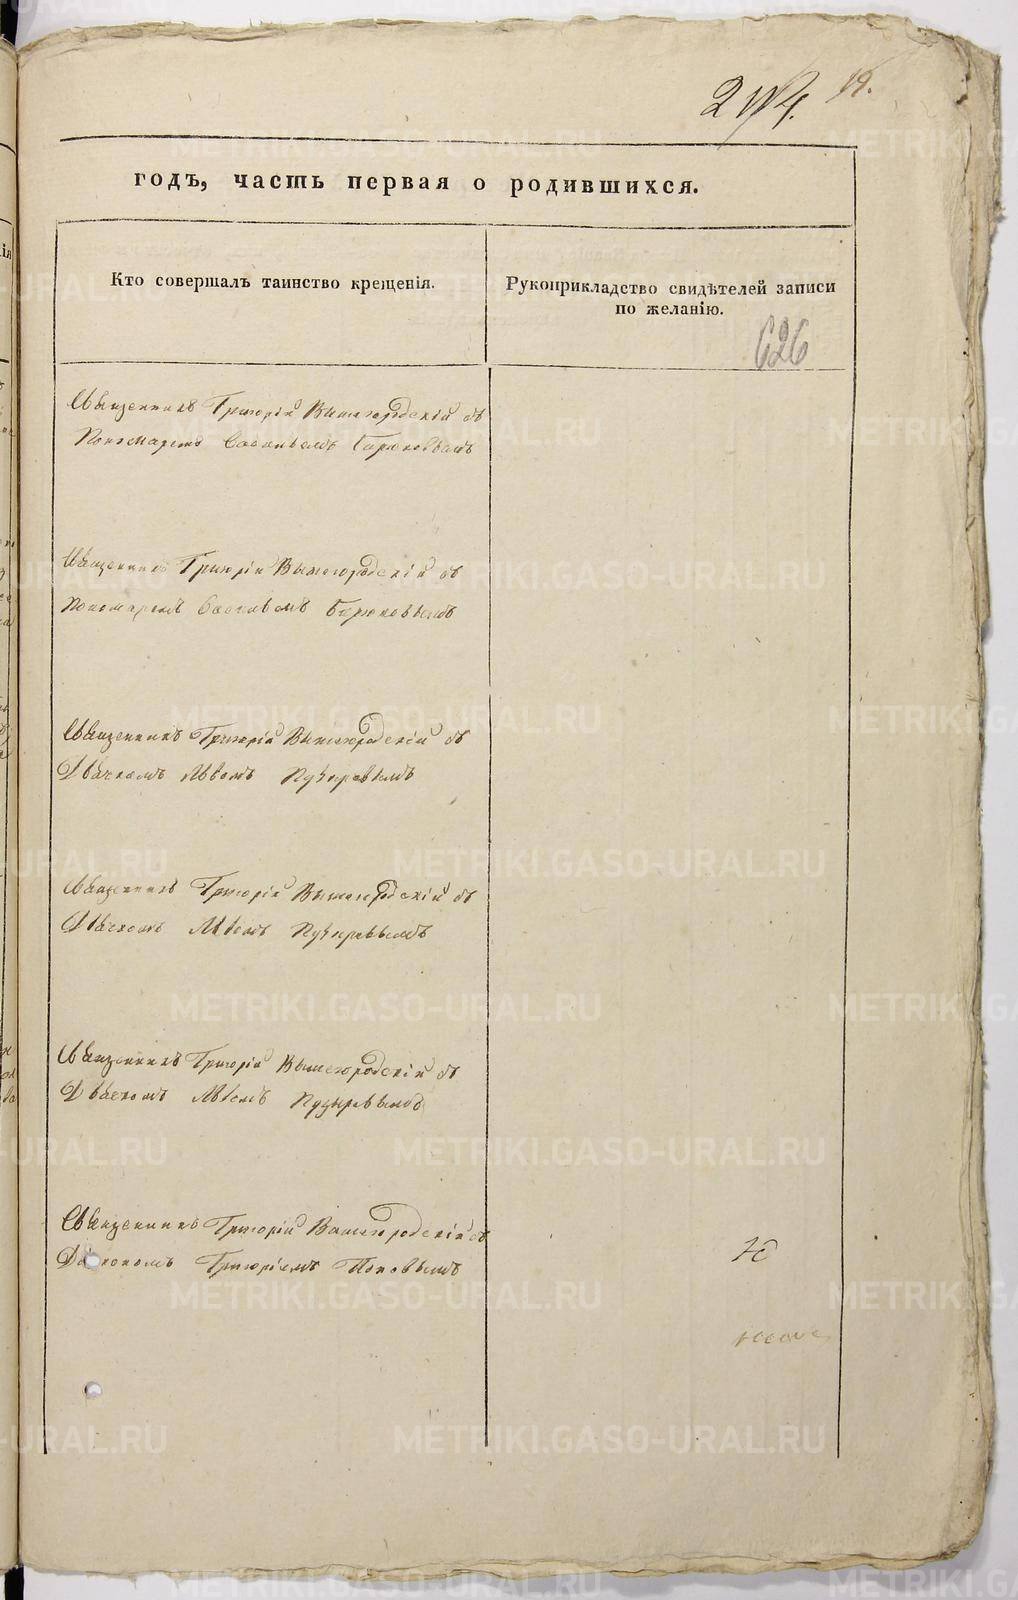 19.
годъ, часть первая о родившихся.
Кто совершалъ таинство крещенія.
Рукоприкладство свидѣтелей записи
по желанію.
626
Священникъ Григорій Вышегородскій съ
Пономаремъ Бирюковымъ
Священникъ Григорій Вышегородскій съ
Пономаремъ Бирюковымъ
Священникъ Григорій Вышегородскій съ
Дьячкомъ Львомъ Пузыревымъ
Священникъ Григорій Вышегородскій съ
Дьячкомъ Львомъ Пузыревымъ
Священникъ Григорій Вышегородскій съ
Дьячкомъ Львомъ Пузыревымъ
Священникъ Григорій Вышегородскій съ
Діакономъ Григоріемъ Поповымъ
METRIKI.GASO-URAL.RU